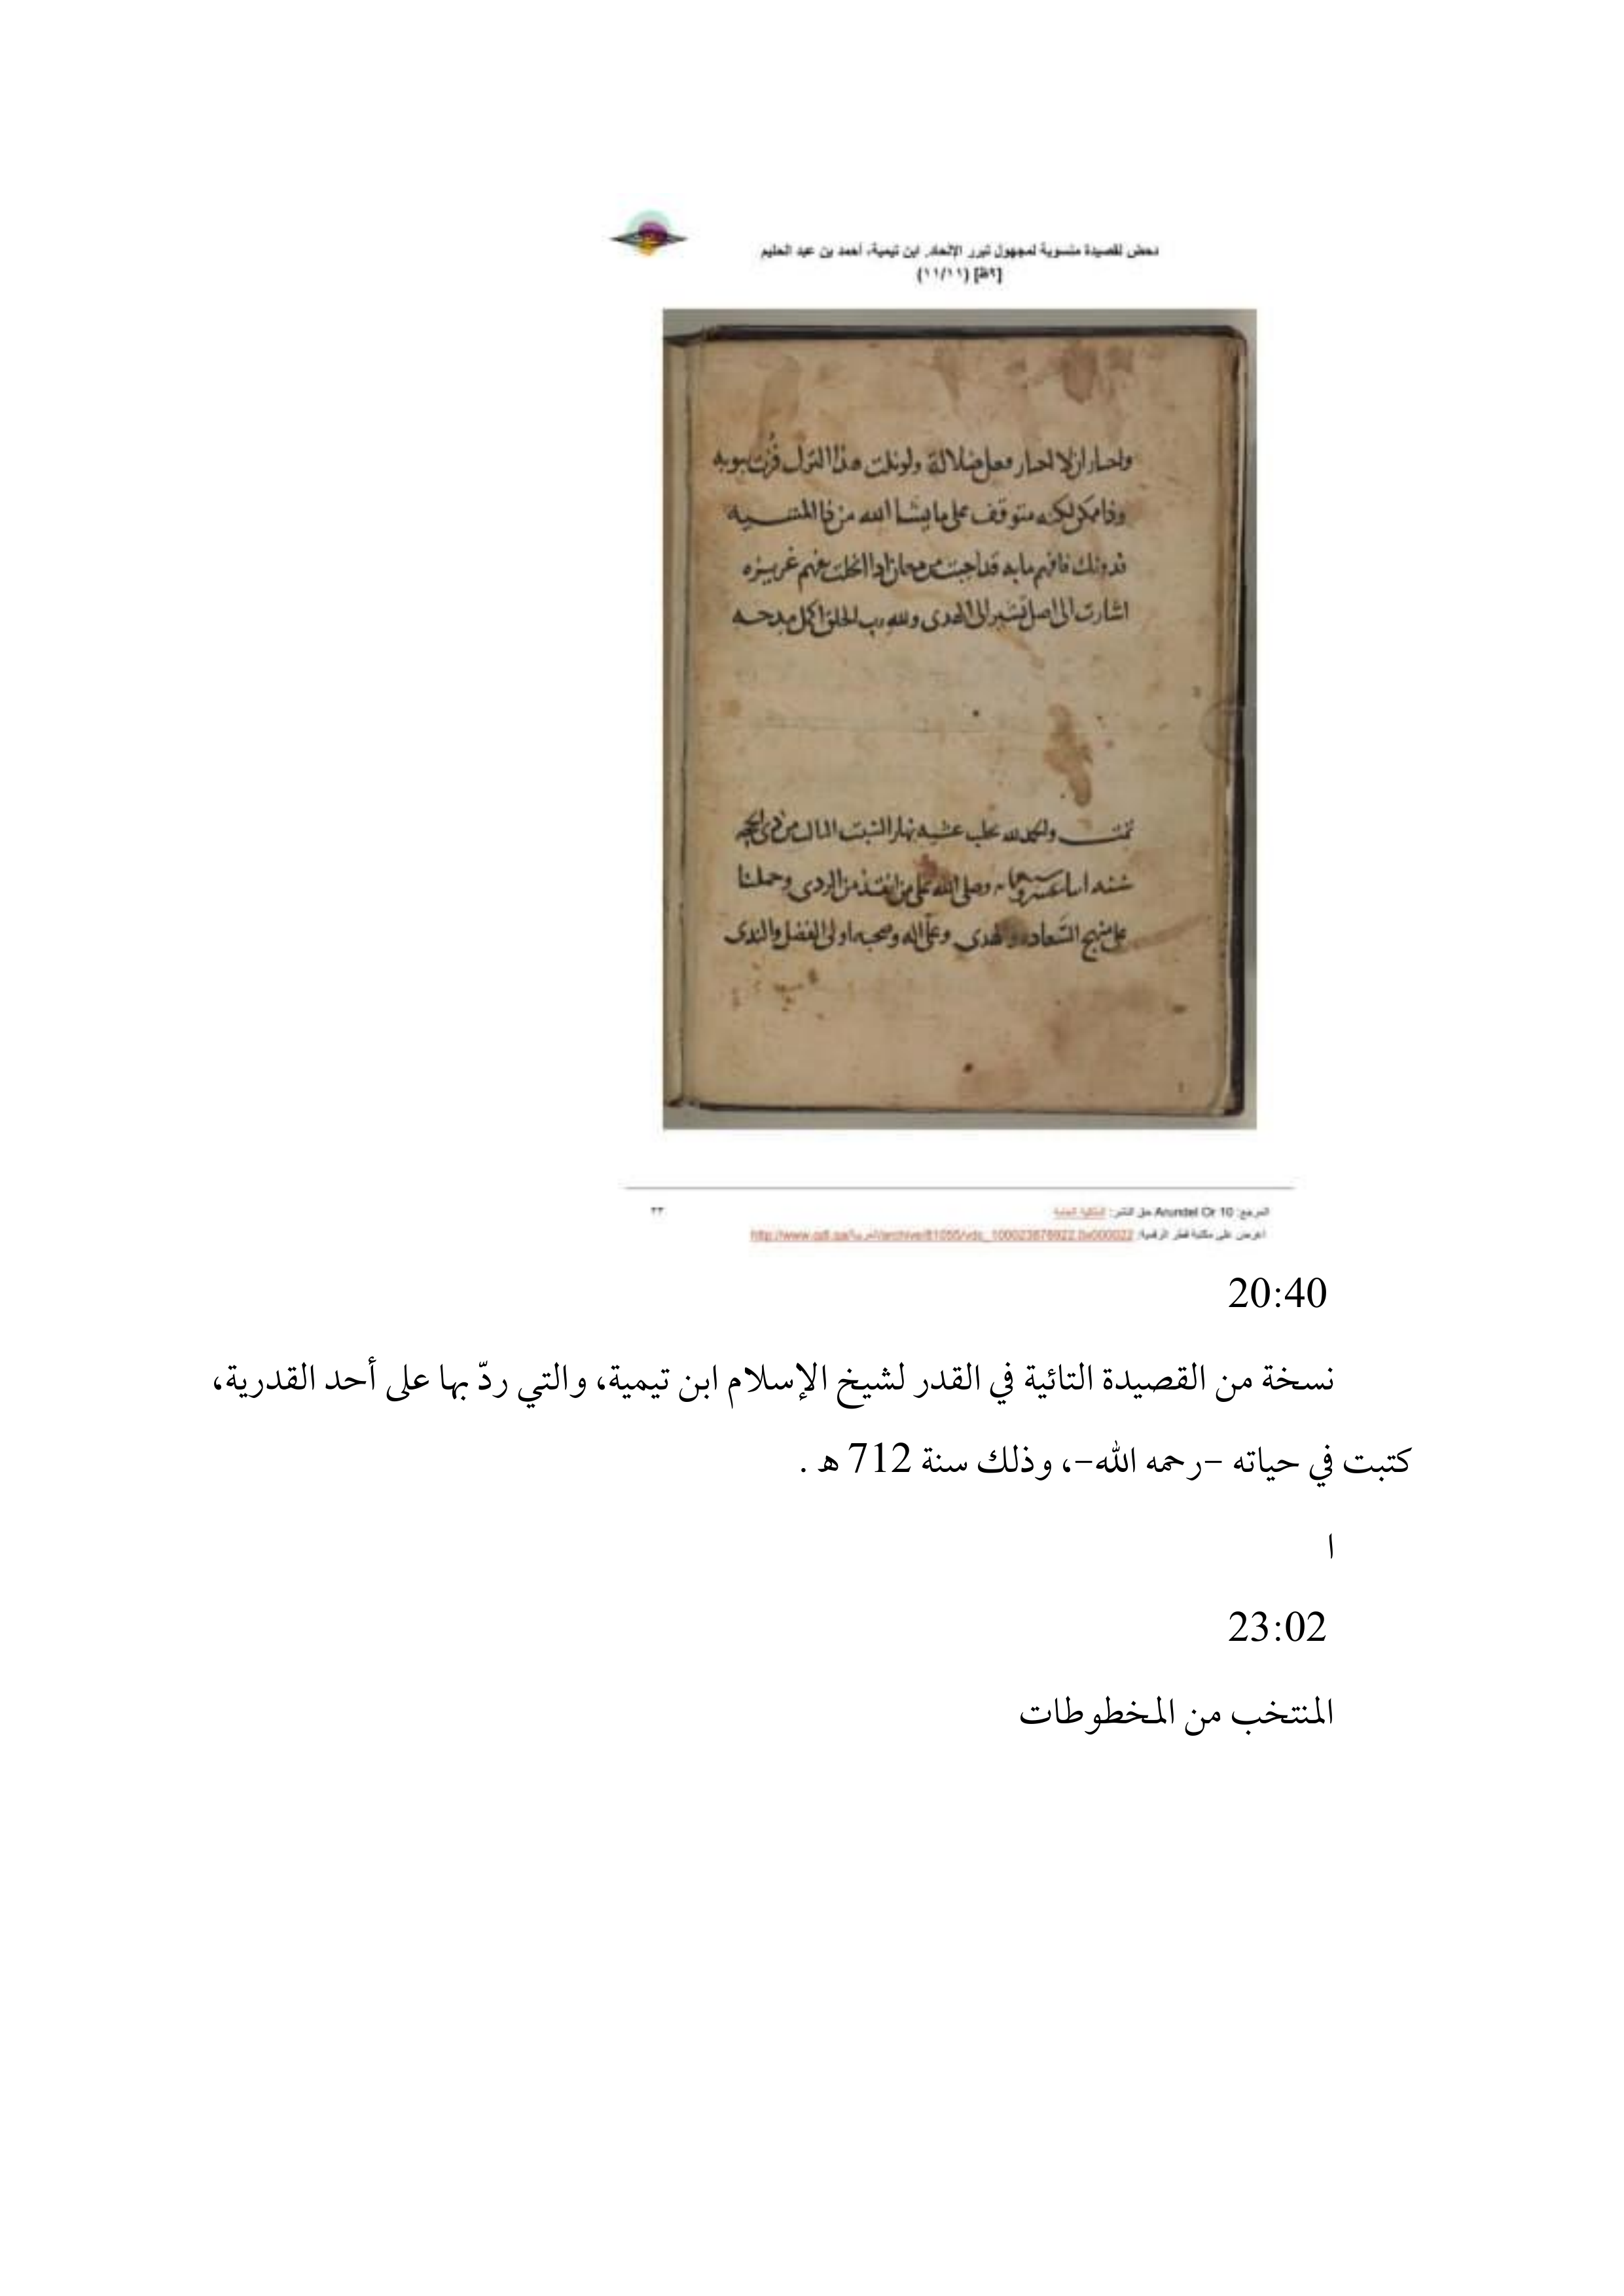 دحض لقصيدة منسوبة لمجهول تبرر الإلحاد. ابن تيمية، أحمد بن عبد الحليم
[٩ظ] (١١/١١)
واحىار ان لا احىار فعل ضلالة ولو نلت هذا الترك فزت بتوبه
وذا ممكن لكنه متوقف على ما يشا الله من ذا المشىىه
فدونك فافهم ما به قد اجبت من معان اذا انحلت بفهم غريزه
اشارت الى اصل تشير الى الهدى ولله رب الخلق اكمل مدحه
تمت والحمد لله بحلب عشيه نهار السبت الىالث من ذى الحجه
سنه اىىا عشر وسبعمايه وصلى الله على من انقذ من الردى وحملنا
على منهج السعاده والهدى وعلى اله وصحبه اولى الفضل والندى
المرجع: Arundel Or 10 حق النشر: الملكية العامة
٢٣
اعرض على مكتبة قطر الرقمية:
20:40
نسخة من القصيدة التائية في القدر لشيخ الإسلام ابن تيمية، والتي ردّ بها على أحد القدرية،
كتبت في حياته -رحمه الله-، وذلك سنة 712 ه .
ا
23:02
المنتخب من المخطوطات